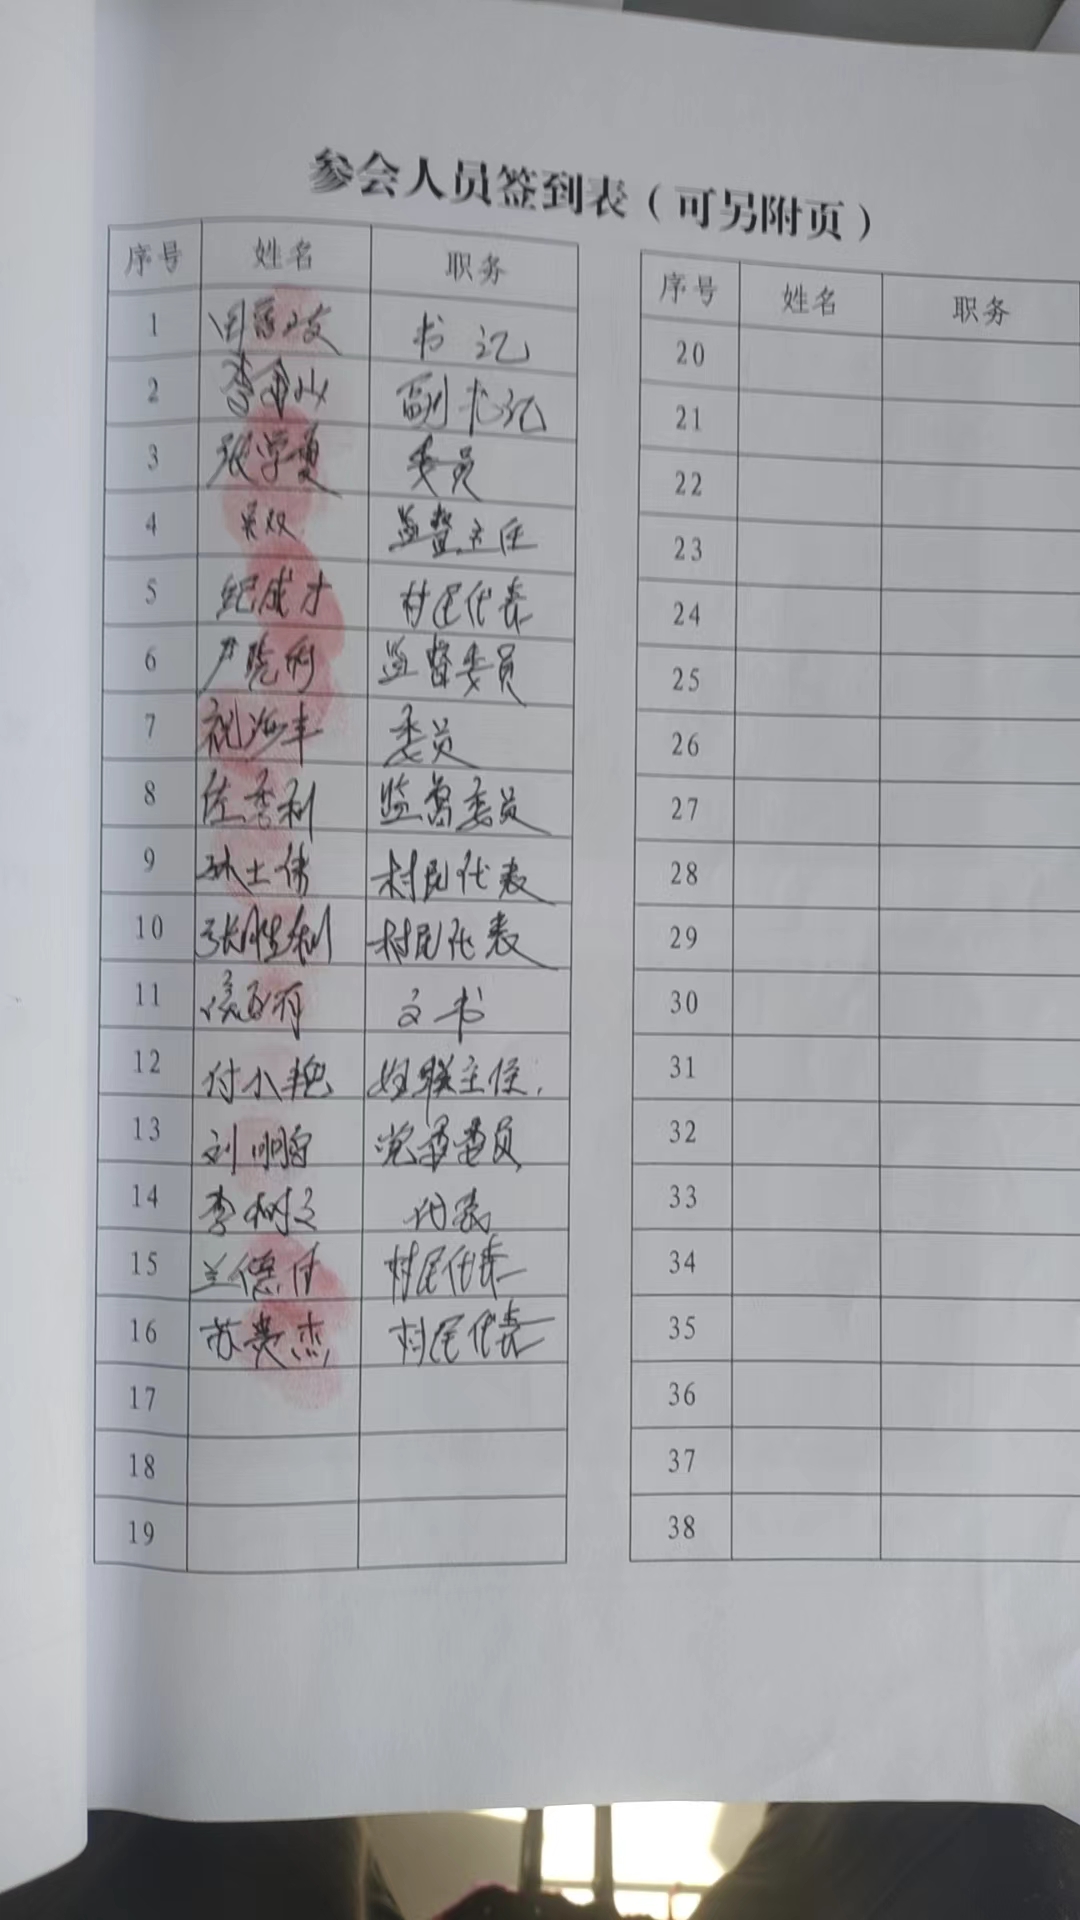 参会人员签到表（可另附页）
序号 姓名 职务
1 书记
2 李金山 副书记
3 张学勇 委员
4 吴双 监督主任
5 纪成才 村民代表
6 尹晓利 监督委员
7 祝海丰 委员
8 监督委员
9 孙士伟 村民代表
10 张胜利 村民代表
11 文书
12 付小艳 妇联主任
13 刘明 党委委员
14 李树文 代表
15 兰德 村民代表
16 苏贵杰 村民代表
17
18
19
序号 姓名 职务
20
21
22
23
24
25
26
27
28
29
30
31
32
33
34
35
36
37
38